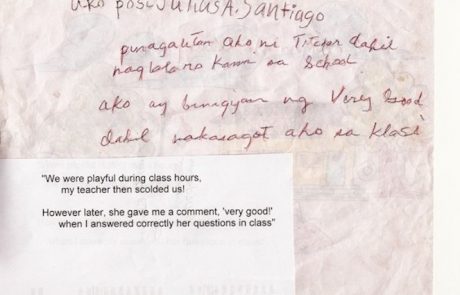 ako posi Julius A. Santiago
pinagalitan ako ni Titcher dahil
naglalaro kami sa School
ako ay binigyan ng Very Good
dahil nakasagot ako sa klasi
"We were playful during class hours,
my teacher then scolded us!
However later, she gave me a comment, 'very good!'
when I answered correctly her questions in class"